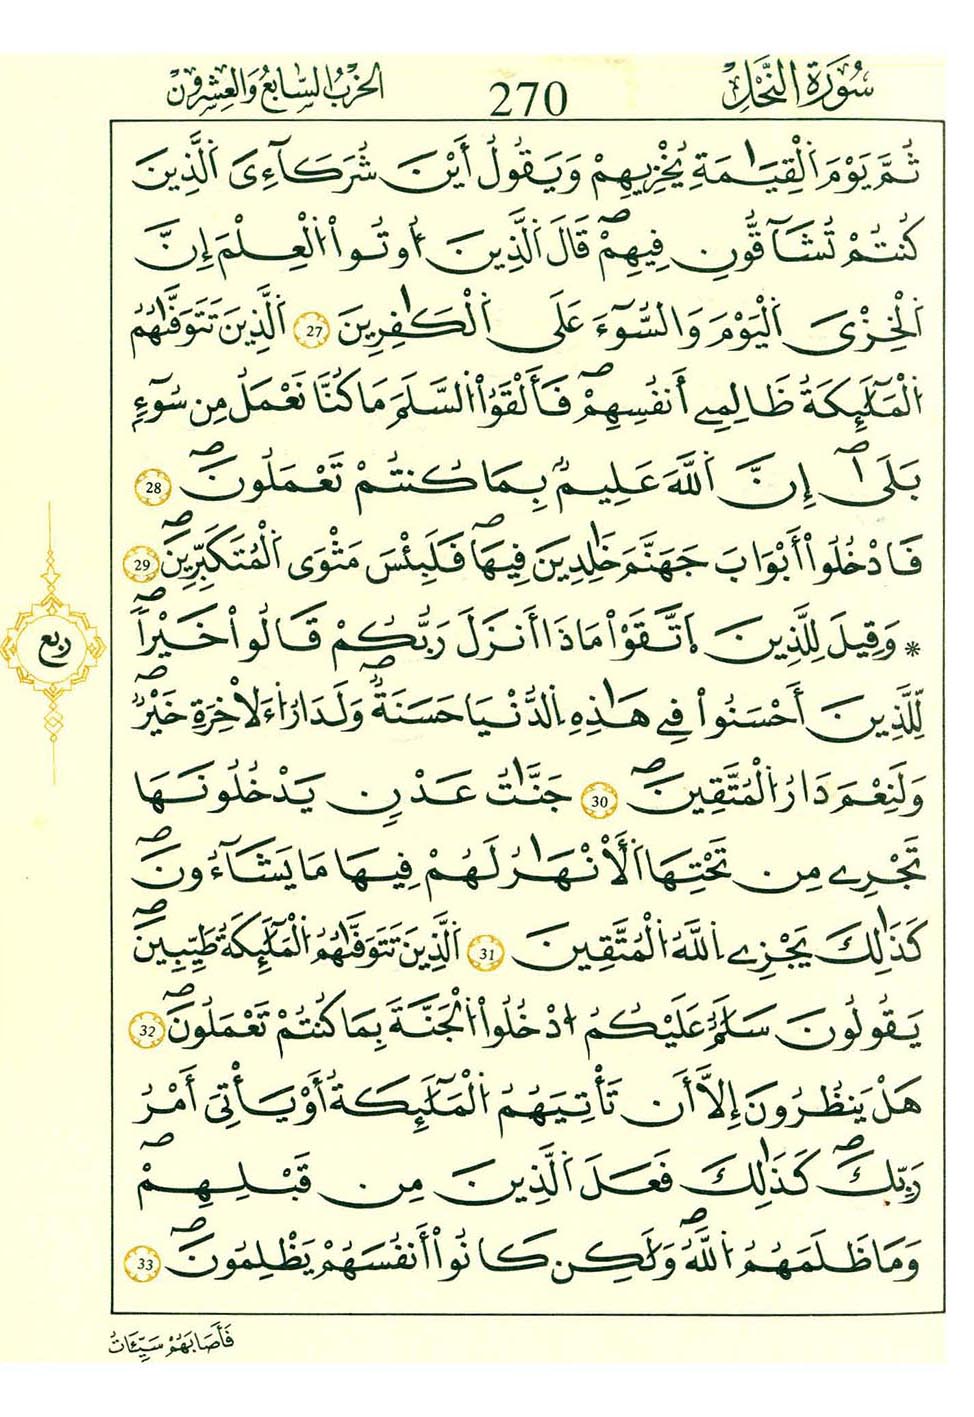 سُورَةُ النَّحْلِ 270 الحِزْبُ السَّابِعُ وَالعِشْرُونَ
ثُمَّ يَوْمَ اَ۬لْقِيَٰمَةِ يُخْزِيهِمْ وَيَقُولُ أَيْنَ شُرَكَآءِىَ اَ۬لذِينَ
كُنتُمْ تُشَٰٓقُّونِ فِيهِمْۖ قَالَ اَ۬لذِينَ أُوتُواْ اُ۬لْعِلْمَ إِنَّ
اَ۬لْخِزْىَ اَ۬لْيَوْمَ وَالسُّوٓءَ عَلَى اَ۬لْكَٰفِرِينَ 27 اَ۬لذِينَ تَتَوَفَّىٰهُمُ
اُ۬لْمَلَٰٓئِكَةُ ظَالِمِے أَنفُسِهِمْۖ فَأَلْقَوُاْ اُ۬لسَّلَمَ مَا كُنَّا نَعْمَلُ مِن سُوٓءِۢ
بَلَىٰٓۖ إِنَّ اَ۬للَّهَ عَلِيمُۢ بِمَا كُنتُمْ تَعْمَلُونَۖ 28
فَادْخُلُواْ أَبْوَابَ جَهَنَّمَ خَٰلِدِينَ فِيهَاۖ فَلَبِئْسَ مَثْوَى اَ۬لْمُتَكَبِّرِينَۖ 29
* وَقِيلَ لِلذِينَ اَ۪تَّقَوْاْ مَاذَا أَنزَلَ رَبُّكُمْ قَالُواْ خَيْراٗۖ
لِّلذِينَ أَحْسَنُواْ فِے هَٰذِهِ اِ۬لدُّنْيَا حَسَنَةٞۖ وَلَدَارُ اُ۬لَاخِرَةِ خَيْرٞۖ
وَلَنِعْمَ دَارُ اُ۬لْمُتَّقِينَۖ 30 جَنَّٰتُ عَدْنٖ يَدْخُلُونَهَا
تَجْرِے مِن تَحْتِهَا اَ۬لْأَنْهَٰرُ لَهُمْ فِيهَا مَا يَشَآءُونَۖ
كَذَٰلِكَ يَجْزِے اِ۬للَّهُ اُ۬لْمُتَّقِينَ 31 اَ۬لذِينَ تَتَوَفَّىٰهُمُ اُ۬لْمَلَٰٓئِكَةُ طَيِّبِينَۖ
يَقُولُونَ سَلَٰمٌ عَلَيْكُمُ اُ۟دْخُلُواْ اُ۬لْجَنَّةَ بِمَا كُنتُمْ تَعْمَلُونَۖ 32
هَلْ يَنظُرُونَ إِلَّا أَن تَأْتِيَهُمُ اُ۬لْمَلَٰٓئِكَةُ أَوْ يَأْتِىَ أَمْرُ
رَبِّكَۖ كَذَٰلِكَ فَعَلَ اَ۬لذِينَ مِن قَبْلِهِمْۖ
وَمَا ظَلَمَهُمُ اُ۬للَّهُۖ وَلَٰكِن كَانُواْ أَنفُسَهُمْ يَظْلِمُونَۖ 33
ربع
فَأَصَابَهُمْ سَيِّـَٔاتُ